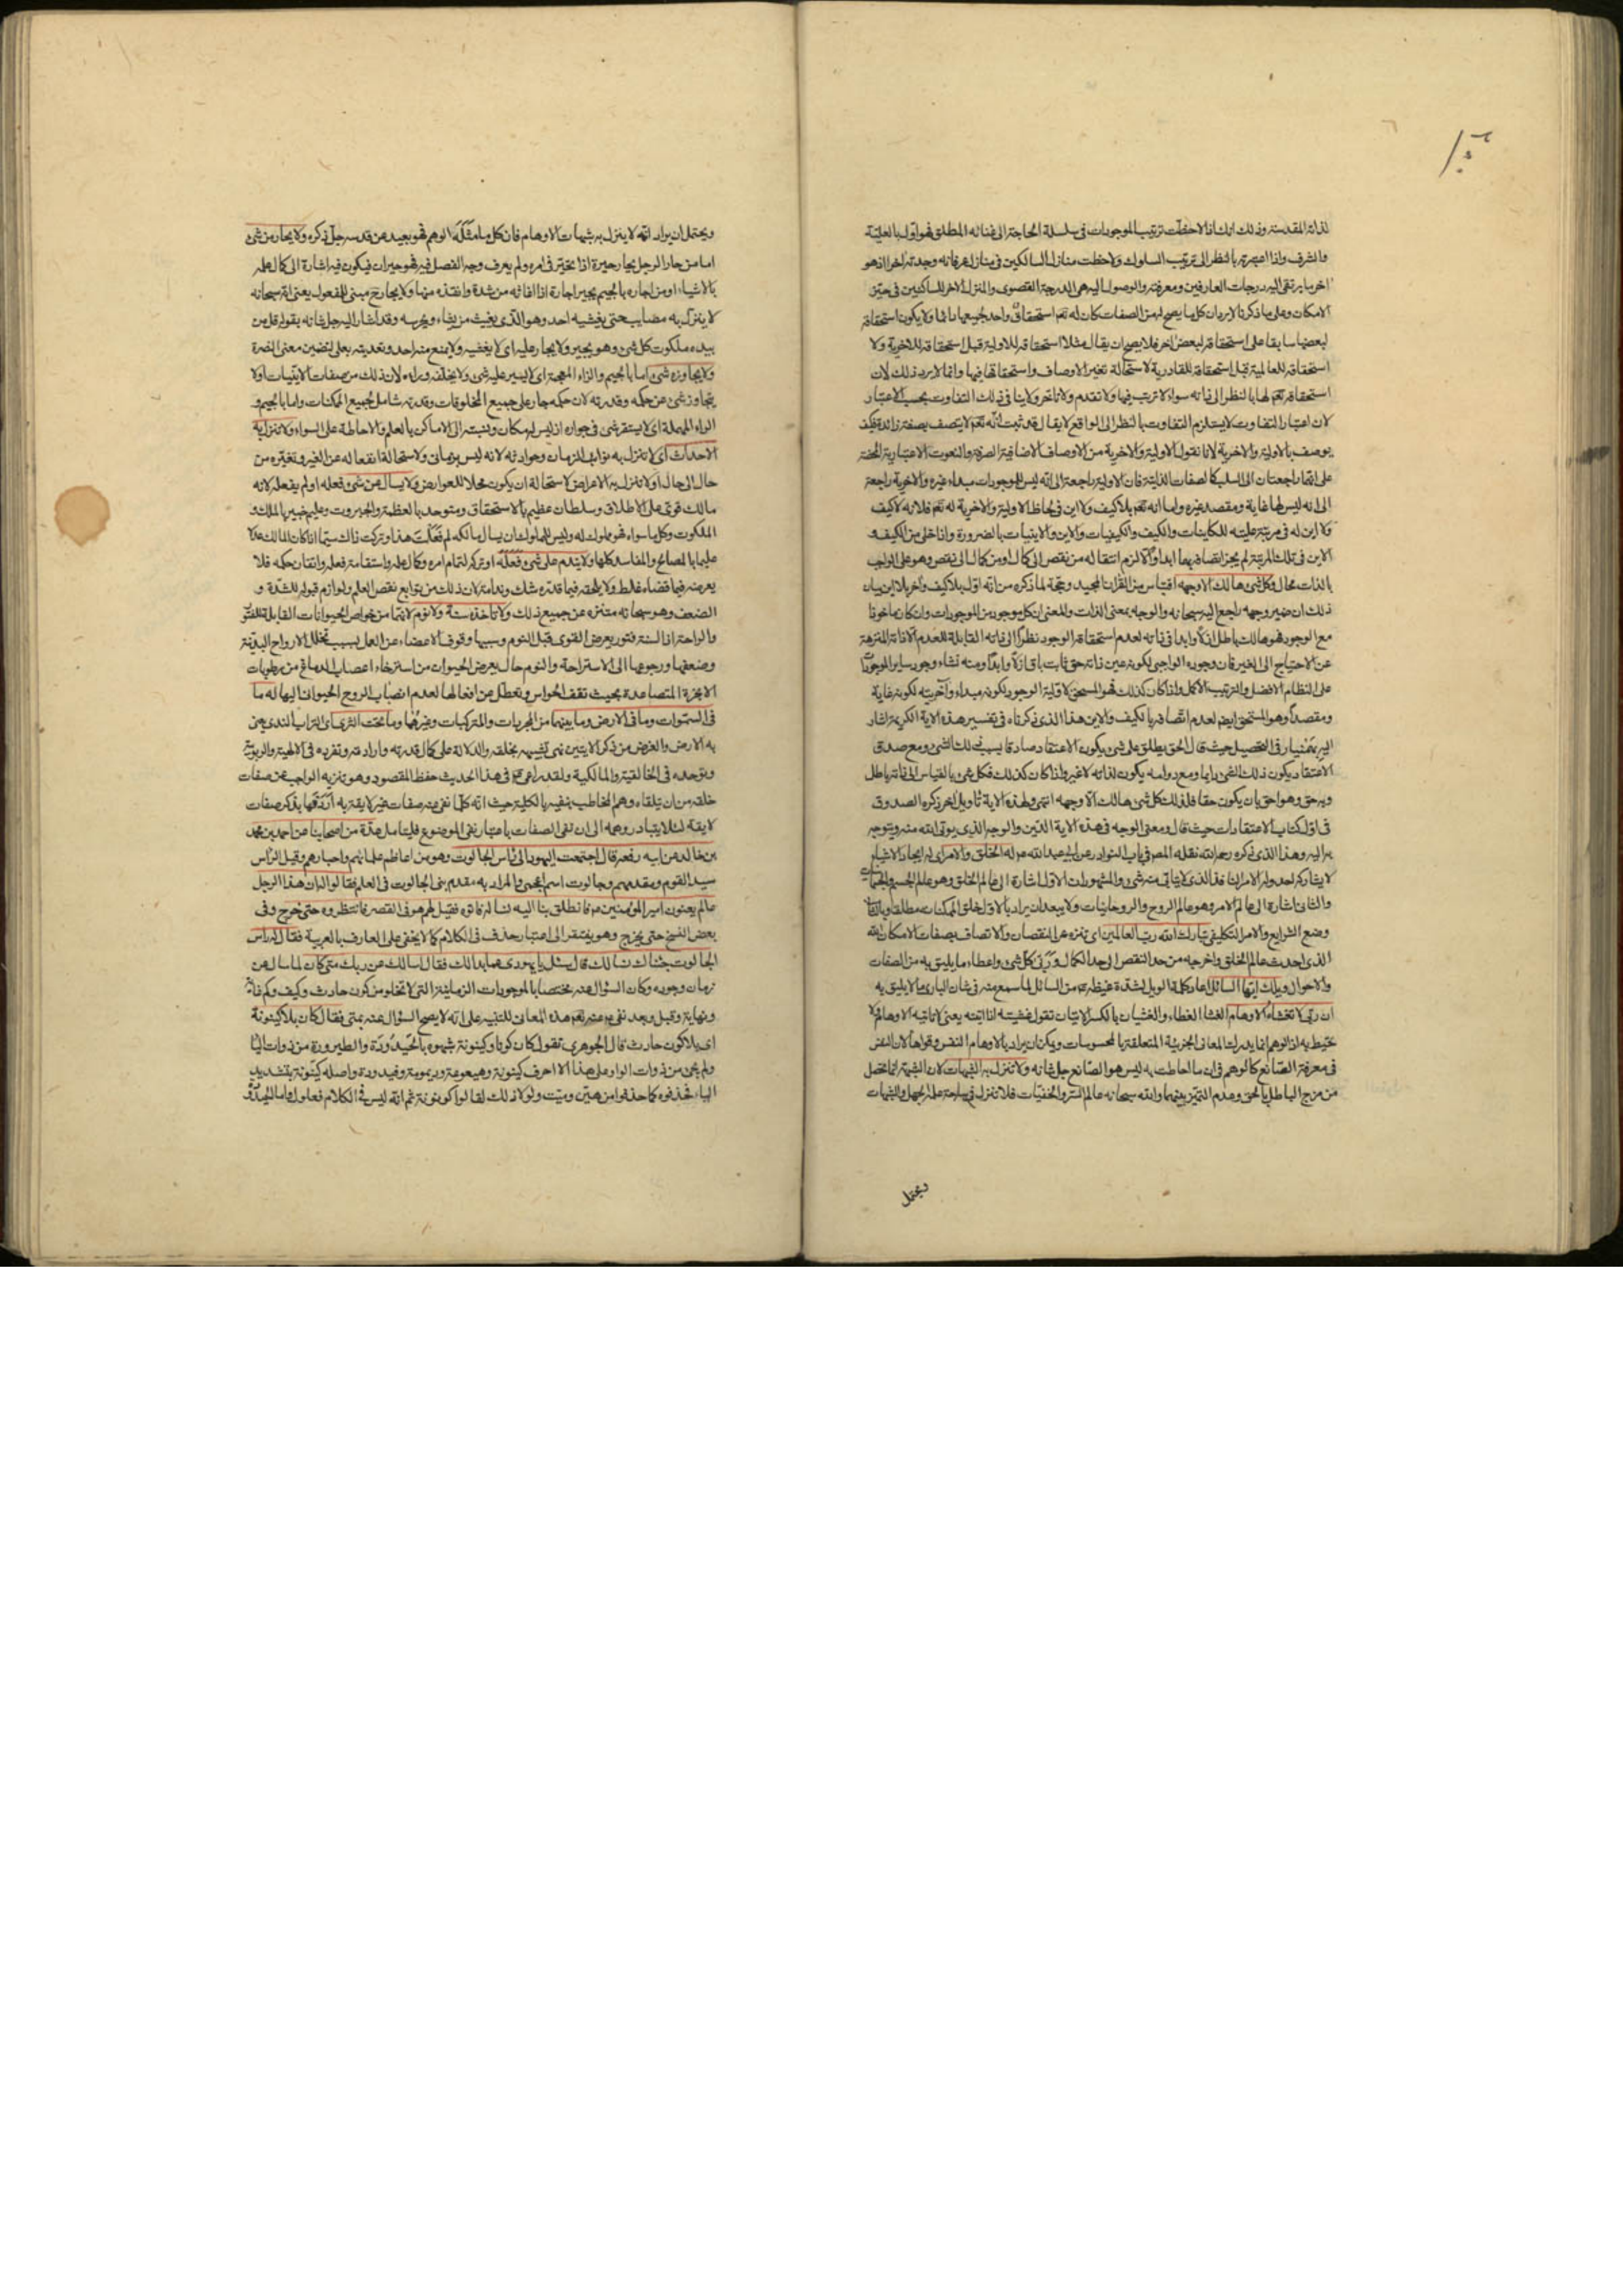 لذاته المقدسة وذلك انك اذا لاحظت ترتيب الموجودات فى سلسلة الحاجة الى غنائه المطلق فهو اول بالعلية
والشرف واذا اعتبرته بالنظر الى ترتيب السلوك ولاحظت منازل السالكين فى منازل عرفانه وجدته اخرا اذ هو
اخر ما يرتقى اليه درجات العارفين ومعرفته والوصول اليه هى الدرجة القصوى والمنزل الاخر للساكنين فى حيز
الامكان وعلى ما ذكرنا لا يرد ان كل ما يصح له من الصفات كان له تعم استحقاق واحد لجميعها دائما ولا يكون استحقاقه
لبعضها سابقا على استحقاقه لبعض اخر فلا يصح ان يقال مثلا استحقاقه للاولية قبل استحقاقه للاخرية ولا
استحقاقه للعالمية قبل استحقاقه للقادرية لاستحالة تغير الاوصاف واستحقاقها فيها وانما لا يرد ذلك لان
استحقاقه تعم لها بالنظر الى ذاته سواء لا ترتب فيها ولا تقدم ولا تاخر ولا ينافى ذلك التفاوت بحسب الاعتبار
لان اعتبار التفاوت لا يستلزم التفاوت بالنظر الى الواقع لا يقال قد ثبت انه تعم لا يتصف بصفة زائدة فكيف
يوصف بالاولية والاخرية لانا نقول الاولية والاخرية من الاوصاف الاضافية الصرفة والنعوت الاعتبارية المحضة
على انهما راجعتان الى السلب كالصفات الذاتية فان الاولية راجعة الى انه ليس للموجودات مبداء غيره والاخرية راجعة
الى انه ليس لها غاية ومقصد غيره واما انه تعم بلا كيف ولا اين فى لحاظ الاولية والاخرية له تعم فلانه لا كيف
ولا اين له فى مرتبة علية للكاينات والكيف والكيفيات والاين والاينيات بالضرورة واذا خلى من الكيف و
الاين فى تلك المرتبة لم يجز اتصافه بهما ابدا والا لزم انتقاله من نقص الى كمال او من كمال الى نقص وهو على الواجب
بالذات محال وكل شئ هالك الا وجهه اقتباس من القران المجيد وحجة لما ذكره من انه اول بلا كيف واخر بلا اين بيان
ذلك ان ضمير وجهه راجع اليه سبحانه والوجه بمعنى الذات والمعنى ان كل موجود من الموجودات وان كان ماخوذا
مع الوجود فهو هالك باطل ازلا وابدا فى ذاته لعدم استحقاقه الوجود نظرا الى ذاته القابلة للعدم الا ذاته المنزهة
عن الاحتياج الى الغير فان وجوده الواجبى لكونه عين ذاته حق ثابت باق ازلا وابدا ومنه نشاء وجود ساير الموجودات
على النظام الافضل والترتيب الاكمل واذا كان كذلك فهو المستحق لاولية الوجود لكونه مبداء واخريته لكونه غاية
ومقصدا وهو المستحق ايضا لعدم اتصافه بالكيف والاين هذا الذى ذكرناه فى تفسير هذه الاية الكريمة اشار
اليه بهمنيار فى التحصيل حيث قال الحق يطلق على شئ يكون الاعتقاد صادقا بسبب ذلك الشئ ومع صدق
الاعتقاد يكون ذلك الشئ دايما ومع دوامه يكون لذاته لا غيره واذا كان كذلك فكل شئ بالقياس الى ذاته باطل
وبه حق وهو احق بان يكون حقا فلذلك كل شئ هالك الا وجهه انتهى ولهذه الاية تاويل اخر ذكره الصدوق
فى اول كتاب الاعتقادات حيث قال ومعنى الوجه فى هذه الاية الدين والوجه الذى يوتى الله منه ويتوجه
به اليه وهذا الذى ذكره رحمه الله نقله المص فى باب النوادر عن ابى عبد الله عم له الخلق والامر اى له ايجاد الاشياء
لا يشاركه احد وله الامر النافذ الذى لا يتابى منه شئ والمشهور ان الاول اشارة الى عالم الخلق وهو عالم الجسم والجسمانيات
والثانى اشارة الى عالم الامر وهو عالم الروح والروحانيات ولا يبعد ان يراد بالاول خلق الممكنات مطلقا وبالثانى
وضع الشرايع والامر التكليفى تبارك الله رب العالمين اى تنزه عن النقصان والاتصاف بصفات الامكان الله
الذى احدث عالم الخلق واخرجه من حد النقص الى حد الكمال وربى كل شئ واعطاه ما يليق به من الصفات
والاحوال ويلك ايها السائل اعاد كلمة الويل لشدة غيظه عم من السائل لما سمع منه فى شان البارى ما لا يليق به
ان ربى لا تغشاه الاوهام الغشا الغطاء والغشيان بالكسر الاتيان تقول غشيته اذا اتيته يعنى لا تاتيه الاوهام ولا
تحيط به اذ الوهم انما يدرك المعانى الجزئية المتعلقة بالمحسوسات ويمكن ان يراد بالاوهام النفس وقواها لان النفس
فى معرفة الصانع كالوهم فى ان ما احاطت به ليس هو الصانع جل شانه ولا تنزل به الشبهات لان الشبهة انما تحصل
من مزج الباطل بالحق وعدم التميز بينهما والله سبحانه عالم السر والخفيات فلا تنزل فى ساحة علمه الجهل والشبهات
ويحتمل
ويحتمل ان يراد انه لا ينزل به شبهات الاوهام فان كل ما مثله الوهم فهو بعيد عن قدسه جل ذكره ولا يحار من شئ
اما من حار الرجل يحار حيرة اذا تحير فى امره ولم يعرف وجه الفصل فيه فهو حيران فيكون فيه اشارة الى كمال علمه
بالاشياء او من اجاره بالجيم يجير اجارة اذا اغاثه من شدة وانقذه منها ولا يجار ح مبنى للمفعول يعنى انه سبحانه
لا ينزل به مصايب حتى يغشيه احد وهو الذى يغيث من يشاء ويحرسه وقد اشار اليه جل شانه بقوله قل من
بيده ملكوت كل شئ وهو يجير ولا يجار عليه اى لا يغشيه ولا يمنع منه احد وتعديته بعلى لتضمين معنى النصرة
ولا يجاوزه شئ اما بالجيم والزاء المعجمة اى لا يسير عليه شئ ولا يخلفه وراءه لان ذلك من صفات الاينيات او لا
يتجاوز شئ عن حكمه وقدرته لان حكمه جار على جميع المخلوقات وقدرته شامل لجميع الممكنات واما بالجيم و
الراء المهملة اى لا يستقر شئ فى جواره اذ ليس له مكان ونسبته الى الاماكن بالعلم والاحاطة على السواء ولا تنزل به
الاحداث اى لا تنزل به نوايب الزمان وحوادثه لانه ليس بزمانى ولاستحالة انفعاله عن الغير وتغيره من
حال الى حال او لا تنزل به الاعراض لاستحالة ان يكون محلا للعوارض ولا يسال عن شئ فعله او لم يفعله لانه
مالك قوى على الاطلاق وسلطان عظيم بالاستحقاق ومتوحد بالعظمة والجبروت وعليم خبير بالملك و
الملكوت وكل ما سواه فهو مملوك له وليس للمملوك ان يسال مالكه لم فعلت هذا وتركت ذاك سيما اذا كان المالك عدلا
عليما بالمصالح والمفاسد كلها ولا يندم على شئ فعله او تركه لتمام امره وكمال علمه واستقامة فعله واتقان حكمه فلا
يعرضه فيما قضاه غلط ولا يلحقه فيما قدره شك وندامة لان ذلك من توابع نقص العلم ولوازم قبوله للشدة و
الضعف وهو سبحانه متنزه عن جميع ذلك ولا تاخذه سنة ولا نوم لانهما من خواص الحيوانات القابلة للفتور
والراحة اذ السنة فتور يعرض القوى قبل النوم وسببها وقوف الاعضاء عن العمل بسبب تخلل الارواح البدنية
وضعفها ورجوعها الى الاستراحة والنوم حال يعرض الحيوان من استرخاء اعصاب الدماغ من رطوبات
الابخرة المتصاعدة بحيث تقف الحواس وتعطل عن افعالها لعدم انصباب الروح الحيوانى اليها له ما
فى السموات وما فى الارض وما بينهما من المجردات والمركبات وغيرهما وما تحت الثرى اى التراب الندى يعنى
به الارض والغرض من ذكر الايتين نفى تشبيهه بخلقه والدلالة على كمال قدرته وارادته وتفرده فى الالهية والربوبية
وتوحده فى الخالقية والمالكية ولقد راعى عم فى هذا الحديث حفظ المقصود وهو تنزيه الواجب عن صفات
خلقه من ان يتلقاه وهم المخاطب بنفيه بالكلية حيث انه كلما نفى عنه صفات غير لايقة به اردفها بذكر صفات
لايقة لئلا يتبادر وهمه الى ان نفى الصفات باعتبار نفى الموضوع فليتامل عدة من اصحابنا عن احمد بن محمد
بن خالد عن ابيه رفعه قال اجتمعت اليهود الى راس الجالوت وهو من اعاظم علمائهم واحبارهم وقيل الراس
سيد القوم ومقدمهم وجالوت اسم اعجمى والمراد به مقدم بنى الجالوت فى العلم فقالوا له ان هذا الرجل
عالم يعنون امير المؤمنين عم فانطلق بنا اليه نساله فاتوه فقيل لهم هو فى القصر فانتظروه حتى خرج وفى
بعض النسخ حتى يخرج وهو يفتقر الى اعتبار حذف فى الكلام كما لا يخفى على العارف بالعربية فقال له راس
الجالوت جئناك نسالك قال سل يا يهودى عما بدا لك فقال اسالك عن ربك متى كان لما سال عن
زمان وجوده وكان السؤال عنه مختصا بالموجودات الزمانية التى لا تخلو من كون حادث وكيف وكم وغاية
ونهاية وقبل وبعد نفى عم عنه تعم هذه المعانى للتنبيه على انه لا يصح السؤال عنه بمتى فقال كان بلا كينونة
اى بلا كون حادث قال الجوهرى تقول كان كونا وكينونة شبهوه بالحيدودة والطيرورة من ذوات اليا
ولم يجئ من ذوات الواو على هذا الا احرف كينونة وهيعوعة وديمومة وقيدودة واصله كينونة بتشديد
الياء فحذفوه كما حذفوا من هين وميت ولولا ذلك لقالوا كونونة ثم انه ليس فى الكلام فعلول واما الحيدودة